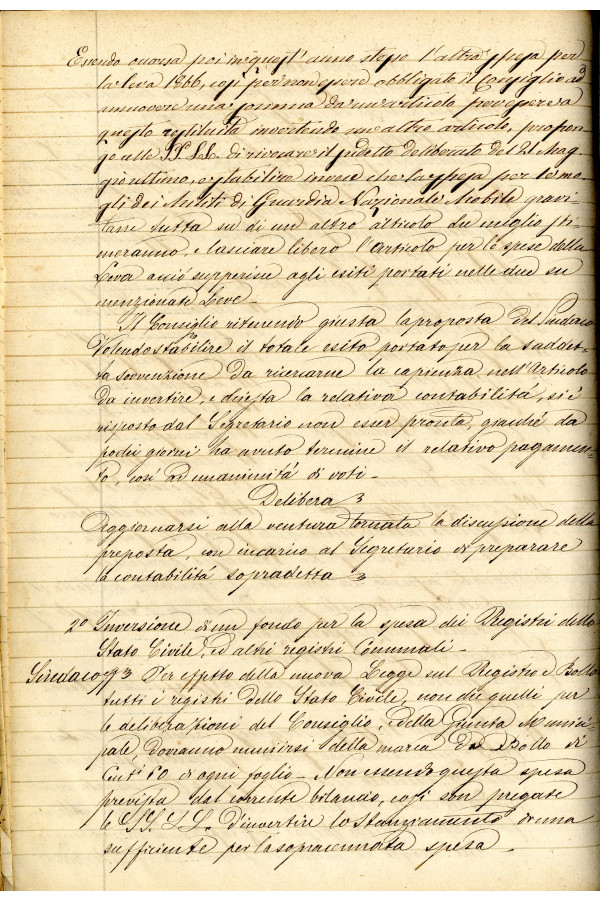 Essendo occorsa poi in quest' anno stesso l'altra spesa per
la leva 1866, così per non essere obbligato il Consiglio ad
annuovere una somma da un articolo per essere a
questo restituita invertendo un altro articolo, propon-
go alle SS. LL. di rivocare il sudetto deliberato del 21 Mag-
gio ultimo, e stabilire invece che la spesa per le mo-
gli dei Militi di Guardia Nazionale Mobile gravi-
tasse tutta su di un altro articolo che meglio sti-
meranno, e lasciare libero l'Articolo per le spese della
Leva acciò supperisse agli esiti portati nelle due su
menzionate Leve -
Il Consiglio ritenendo giusta la proposta del Sindaco
Volendo stabilire il totale esito portato per la suddet-
ta sovvenzione da ricercarne la capienza nell'Articolo
da invertire, e chiesta la relativa contabilità, si è
risposto dal Segretario non esser pronta, giacchè da
pochi giorni ha avuto termine il relativo pagamen-
to, così ad unanimità di voti -
Delibera
Aggiornarsi alla ventura tornata la discussione della
proposta, con incarico al Segretario di preparare
la contabilità sopradetta
2º Inversione di un fondo per la spesa dei Registri dello
Stato Civile, ed altri registri Comunali -
Sindaco Per effetto della nuova Legge sul Registro e Bollo
tutti i registri dello Stato Civile, non che quelli per
le deliberazioni del Consiglio, e della Giunta Munici-
pale, dovranno munirsi della marca da Bollo di
Cent. 60 di ogni foglio - Non essendo questa spesa
prevista dal corrente bilancio, così son pregate
le SS. LL. d'invertire lo stanziamento di una
sufficiente per la sopracennata spesa -